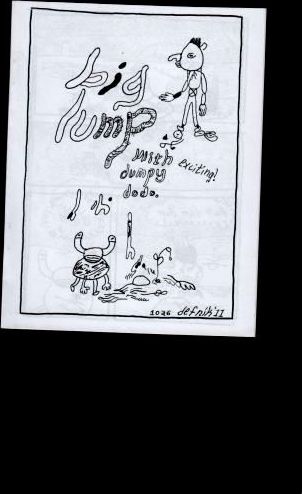 big
lump
with
dumpy
dodo.
exciting!
1026 defnik'11